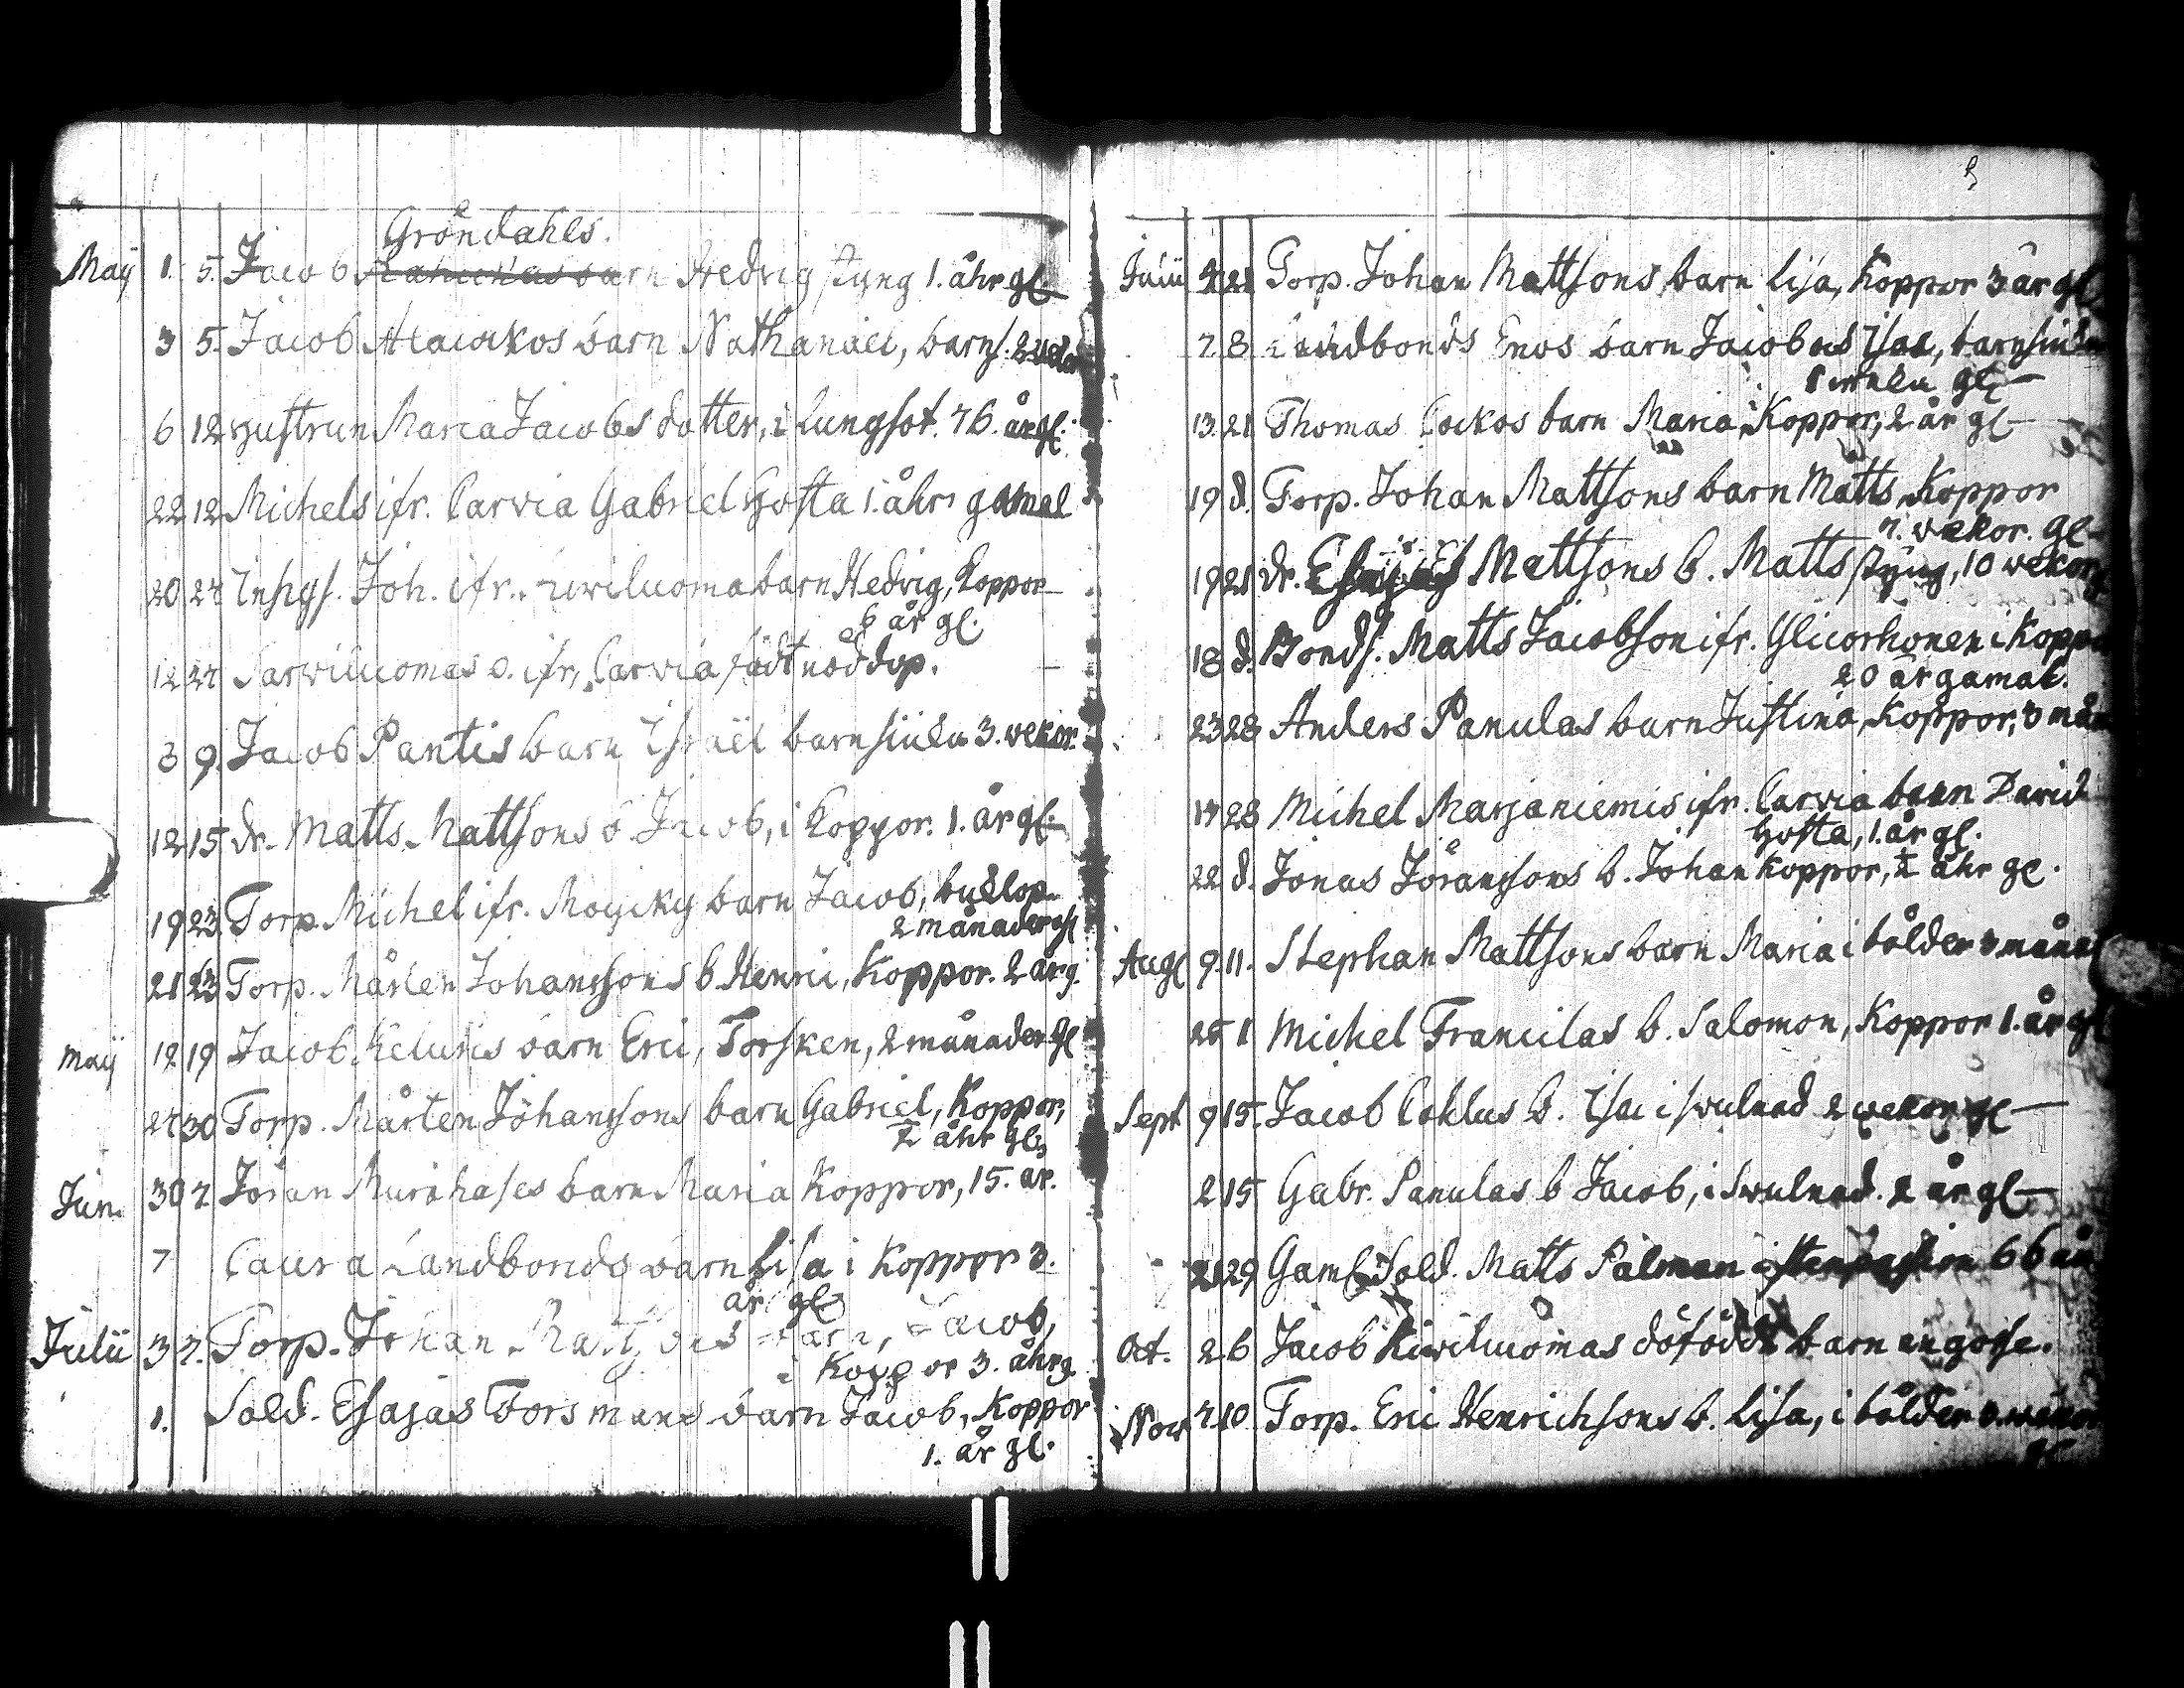 Gröndahls.
Maij 1. 5. Jacob barn Hedvig styng 1. åhr gl.
3 5. Jacob barn Nathanael, barns. 2
6 12 Hustrun Maria Jacobs dotter, i Lungsot. 76. år gl.
22 12 Michels ifr. Carvia Gabriel Hosta 1. åhrs gamal
20 27 Inhys. Joh. ifr. barn Hedvig, Koppor
6 år gl.
12 27 Sarviluomas o. ifr. Carvia födt nöddop.
3 9. Jacob Pantis barn Israël barnsiuka 3. vekor.
12 15 dr. Matts Mattsons b. Jacob, i Koppor. 1. år gl.
19 23 Torp. Michel ifr. Moijsky barn Jacob,
2 månader gl
21 23 Torp. Mårten Johanssons b. Henric, Koppor. 2 år g.
maij 12 19 Jacob barn Eric, Torsken, 2 månader gl
27 30 Torp. Mårten Johanssons barn Gabriel, Koppor,
½ åhr gl.
Jun. 30 7. Jöran Murikases barn Maria Koppor, 15. år.
7 Caura Landbonds barn Lisa i Koppor 3.
år gl
Julii 3 7. Torp. Johan Mattsons barn, Jacob,
i Koppor 3. åhr g
1. Sold. Esajas Forsmans barn Jacob, Koppor
1. år gl.
Julii 4 21 Torp. Johan Mattsons barn Lisa, Koppor 3 år gl
7. 8. Landbonds Enos barn Jacob och Isac, barnsiuka
1 gl.
13. 21 Thomas barn Maria, Koppor, 2 år gl
19 d. Torp. Johan Mattsons barn Matts Koppor
7. wekor. gl
19 21 dr. Mattsons b. Matts styng, 10 wekor
18 d. Bonds. Matts Jacobson ifr. Ylicorhonen i Koppor
20 år gamal.
23 28 Anders Panulas barn Justina, Koppor, 3 mån
17 28 Michel Marjaniemis ifr. Carvia barn David
Hosta, 1. år gl.
22 d. Jonas Jöranssons b. Johan Koppor, ½ åhr gl.
Aug 9. 11. Stephan Mattsons barn Maria i bålder 3 måna
25 1 Michel Francilas b. Salomon, Koppor 1. år gl
Sept 9 15. Jacob b. Isac i swulnad 2 wekor gl
2 15 Gabr. Panulas b Jacob, i Swulnad. 2 år gl
21 29 Gaml. Sold. Matts Palman i 66 år
Oct. 2 6 Jacob Kiviluomas döfödt barn en gosse.
Nov 7. 10 Torp. Eric Henrichsons b. Lisa, i bålder 3. wekor
gl